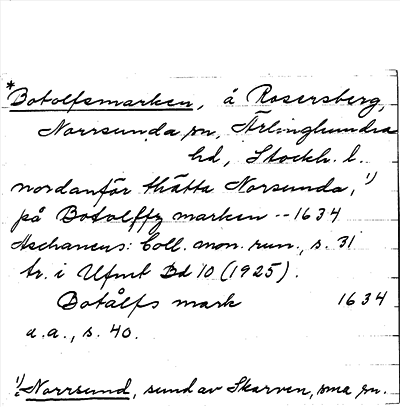 *Botolfsmarken, å Rosersberg,
Norrsunda sn, Ärlinghundra
hd, Stockh. l.
nordanför thätta Norsunda,¹⁾
på Botolffz marken -- 1634
Aschaneus: Coll. mon. run., s. 31
tr. i Ufmt Bd 10 (1925).
Botålfs mark 1634
a.a., s. 40.
¹⁾Norrsund, sund av Skarven, sma sn.